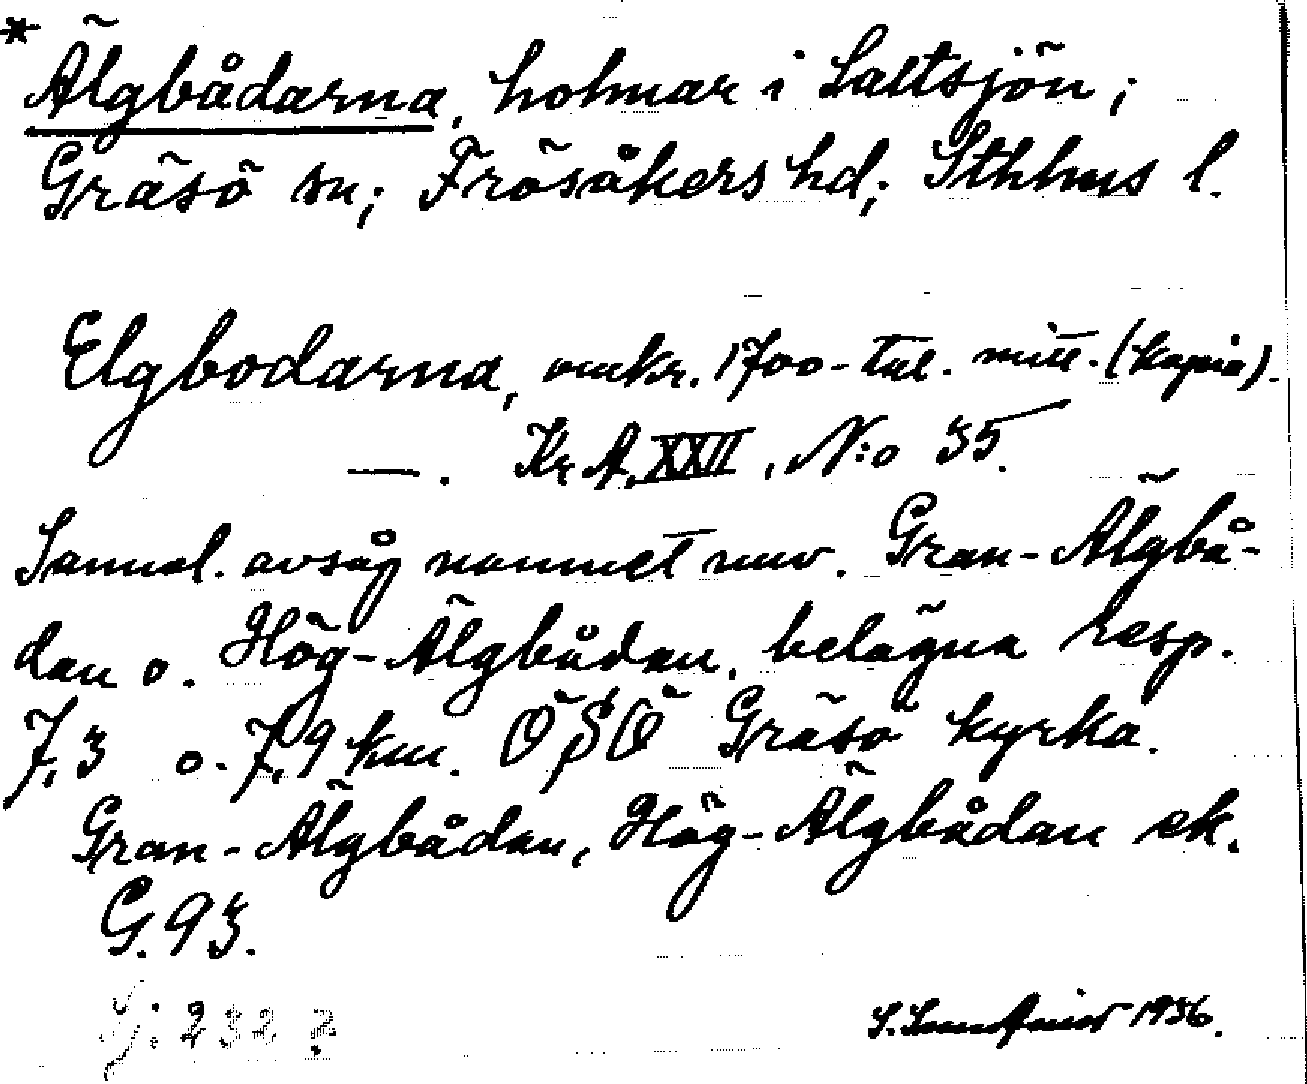 * Älgbådarna, holmar i Saltsjön;
Gräsö sn; Frösåkers hd; Sthlms l.
Elgbodarna, omkr. 1700-tal. mitt. (kopia).
—. Kr. A. XXII, N:o 35.
Sannol. avsåg namnet nuv. Gran-Älgbå-
dan o. Hög-Älgbådan, belägna resp.
7,3 o. 7,9 km. ÖSÖ Gräsö kyrka.
Gran-Älgbådan, Hög-Älgbådan ek.
G. 93.
Sj: 232 ?
S. 1936.